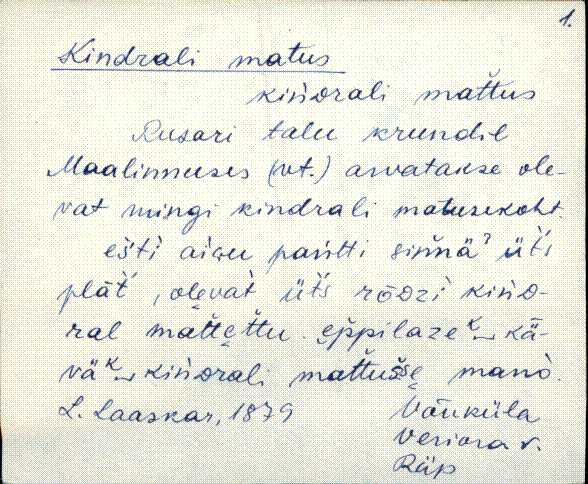 1.
Kindrali matus
kińdrali mat̆tus
Rusari talu krundil
Maalinnuses (vt.) arvatakse ole-
vat mingi kindrali matusekoht.
ešti aigu pańtti sińnäˀ üt̀s
plät̀, olevat̀ üt̀s rōdzi kińd-
ral mat̆tettu. ęp̆pilazeᴷ kä-
väᴷ kińdrali mat̆tusse manò.
L. Laaskar, 1879
Võuküla
Veriora v.
Räp